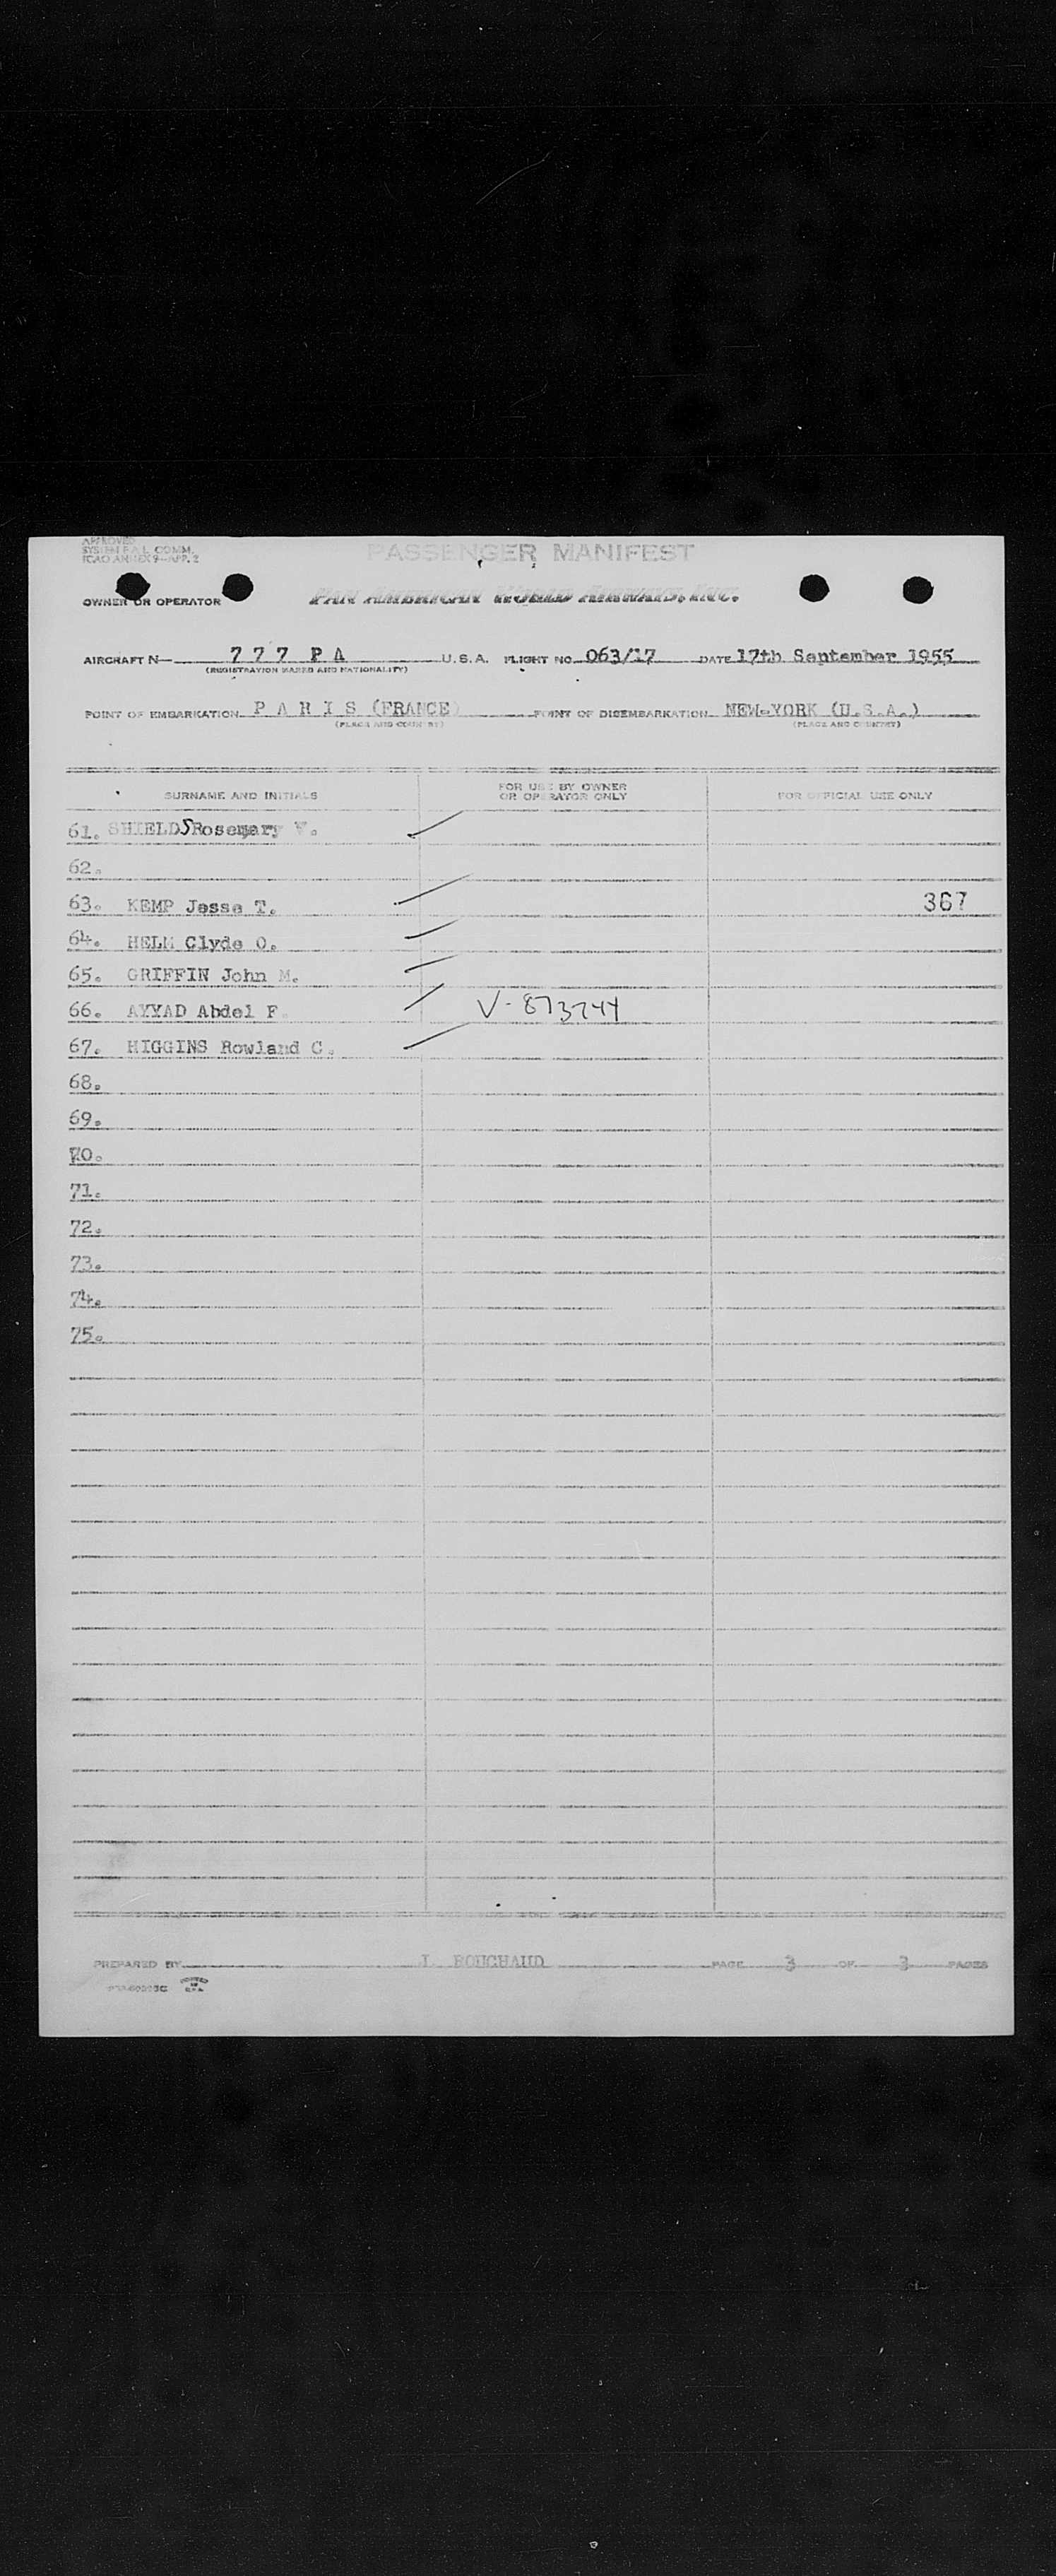 APPROVED
SYSTEM F.A.L. COMM.
ICAO ANNEX 9—APP. 2
PASSENGER MANIFEST
OWNER OR OPERATOR PAN AMERICAN WORLD AIRWAYS, INC.
AIRCRAFT N— 7 7 7 P A U.S.A. FLIGHT NO. 063/17 DATE 17th September 1955
(REGISTRATION MARKS AND NATIONALITY)
POINT OF EMBARKATION P A R I S (FRANCE) POINT OF DISEMBARKATION NEW-YORK (U.S.A.)
(PLACE AND COUNTRY) (PLACE AND COUNTRY)
SURNAME AND INITIALS FOR USE BY OWNER OR OPERATOR ONLY FOR OFFICIAL USE ONLY
61. SHIELDS Rosemary V.
62.
63. KEMP Jesse T. 367
64. HELM Clyde O.
65. GRIFFIN John M.
66. AYYAD Abdel F. V-873744
67. HIGGINS Rowland C.
68.
69.
70.
71.
72.
73.
74.
75.
PREPARED BY J. BOUCHAUD PAGE 3 OF 3 PAGES
PRINTED IN U.S.A.